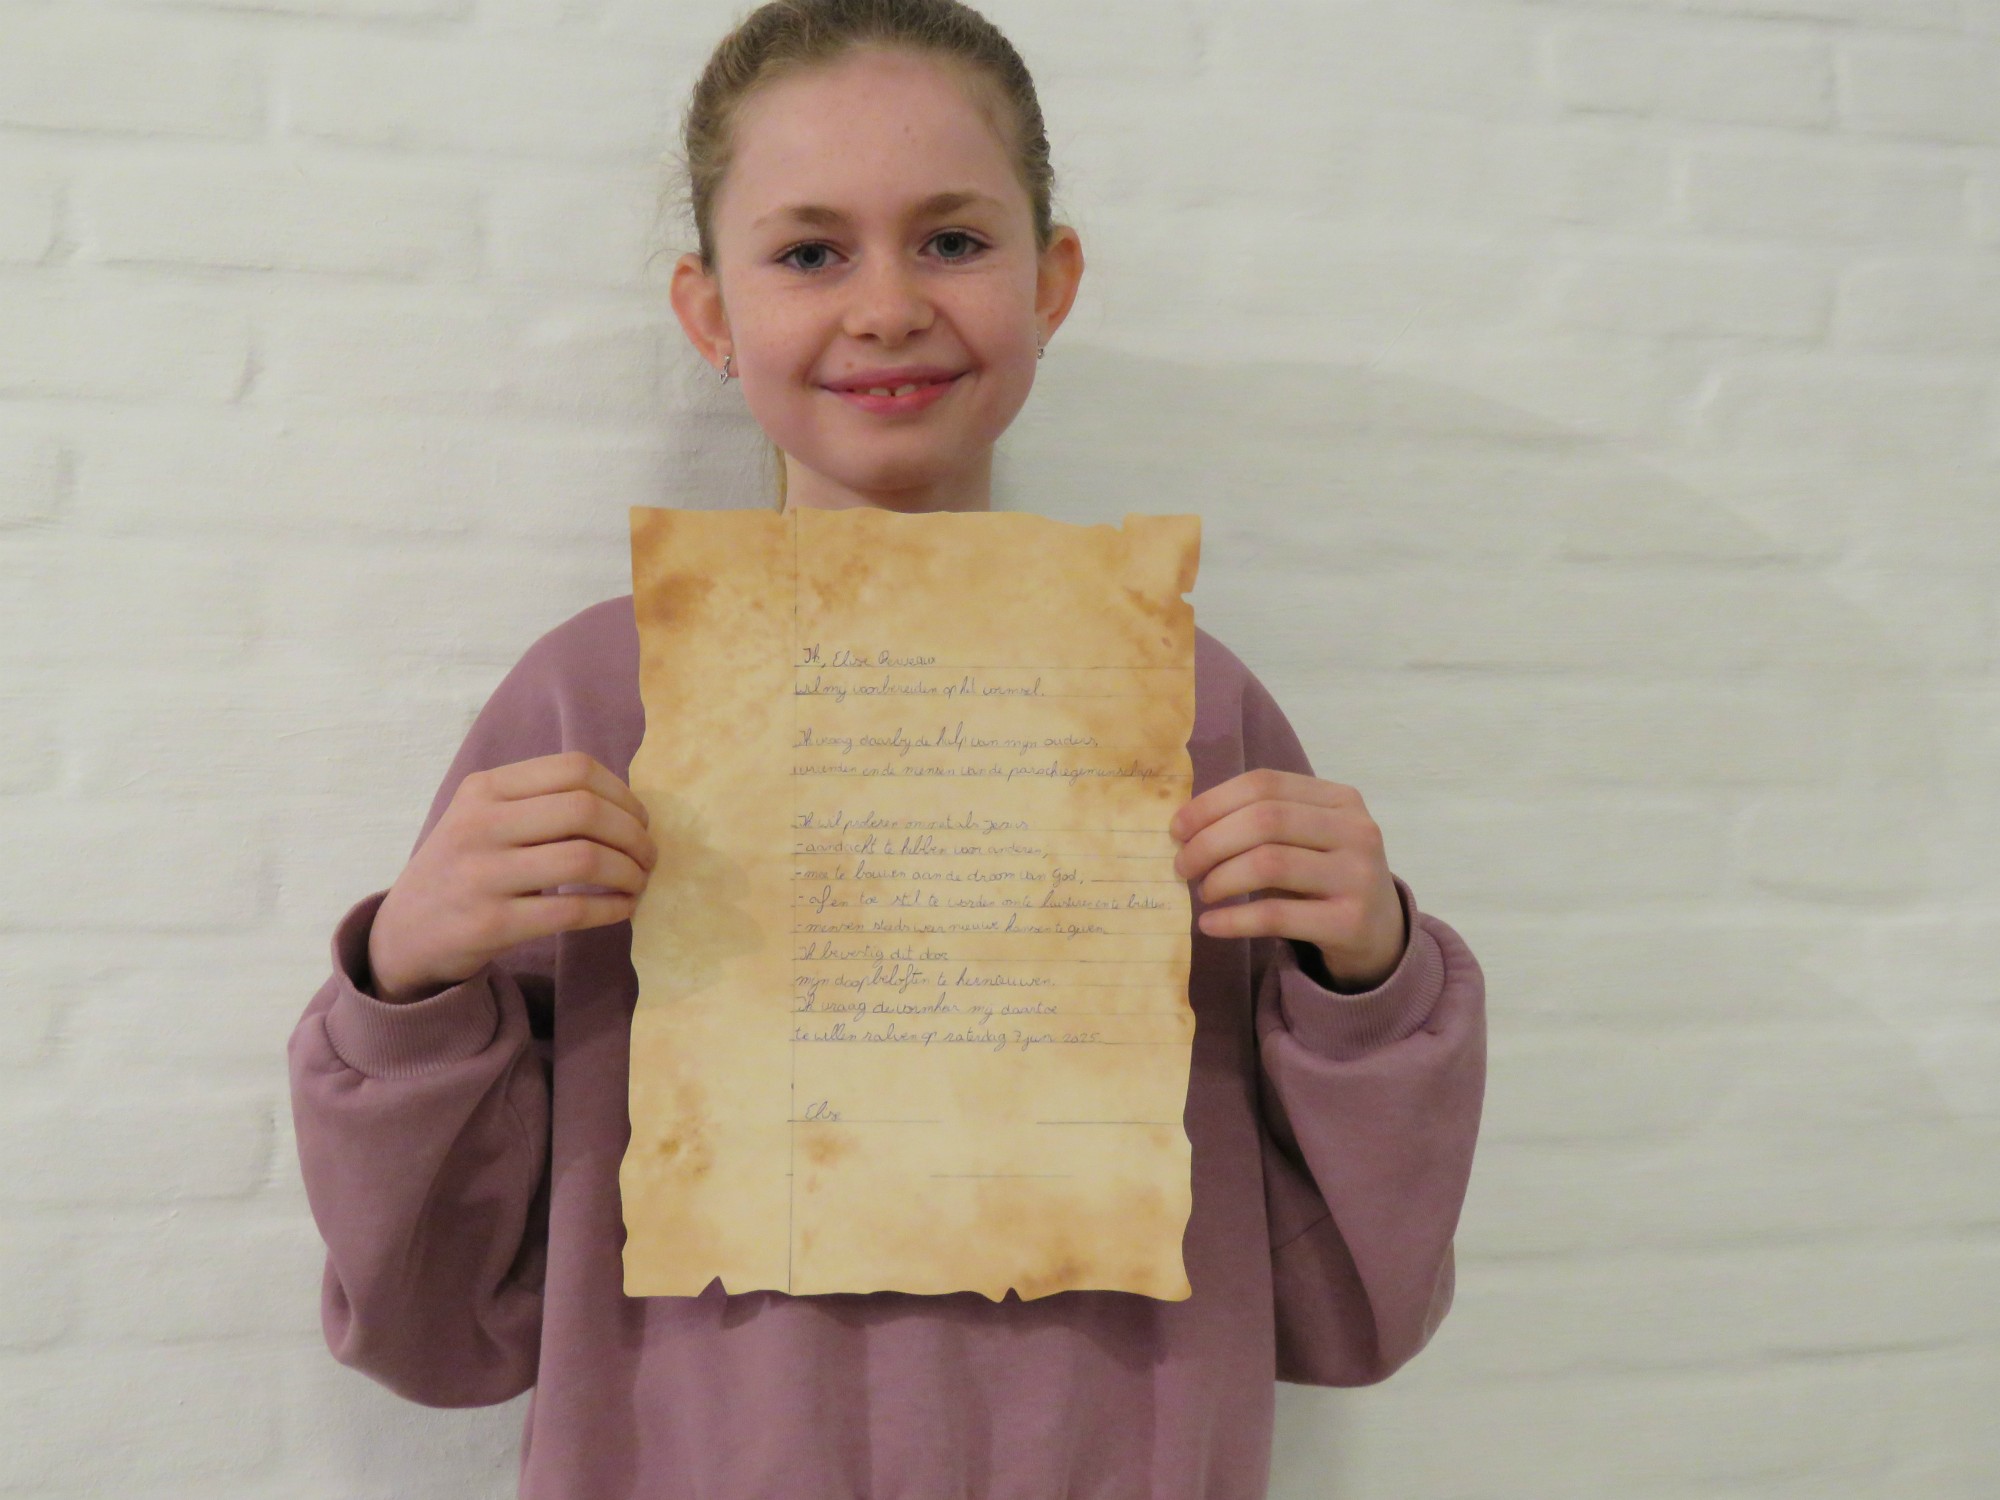 Ik, Elise
wil mij voorbereiden op het vormsel.
Ik vraag daarbij de hulp van mijn ouders,
vrienden en de mensen van de parochiegemeenschap.
Ik wil proberen om net als Jezus
- aandacht te hebben voor anderen,
- mee te bouwen aan de droom van God,
- af en toe stil te worden om te luisteren en te bidden.
- mensen steeds weer nieuwe kansen te geven.
Ik bevestig dit door
mijn doopbeloften te hernieuwen.
Ik vraag de vormheer mij daartoe
te willen zalven op zaterdag 7 juni 2025.
Elise